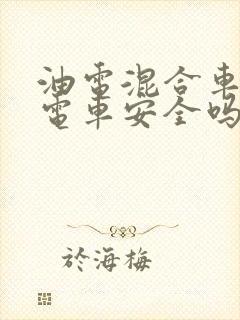 油電混合車
電車安全嗎
於海梅